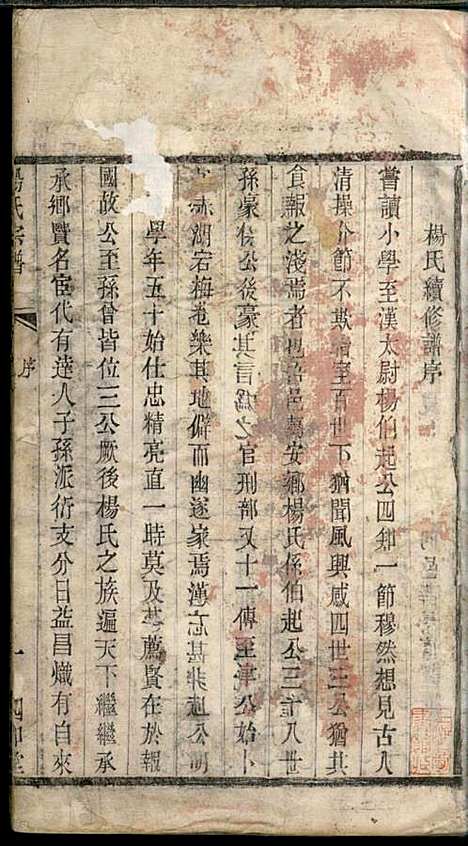 楊氏續修譜序
嘗讀小學至漢太尉楊伯起公四知一節穆然想見古人
清操介節不欺暗室百世下猶聞風興感四世三公猶其
食報之淺焉者也吾邑安鄉楊氏係伯起公三十八世
孫豪侯公後豪其言為之官刑部又十一傳至津公始卜
赤湖宕梅巷樂其地僻而幽遂家焉漢伯起公明
學年五十始仕忠精亮直一時莫及其薦賢在於報
國故公至孫曾皆位三公厥後楊氏之族遍天下繼繼承
承鄉賢名宦代有達人子孫派衍支分日益昌熾有自來
楊氏宗譜
序
一
四知堂